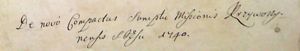 De novo Compactus Sumptu Missionis Krzywosy-
nensis S. Osse 1740.